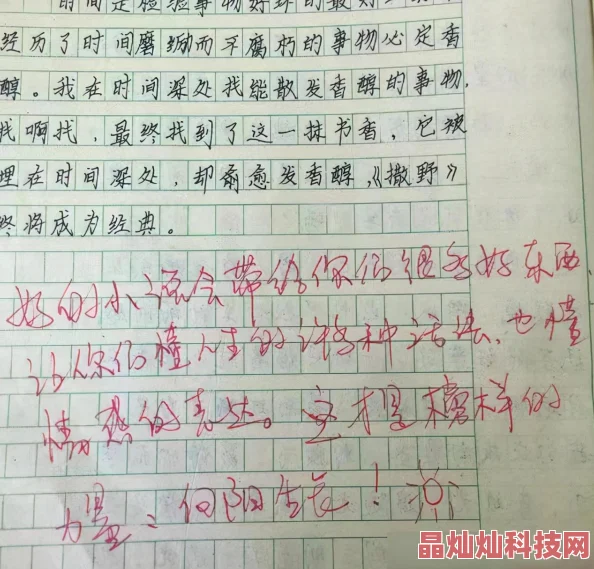 时间是检验事物好坏的最
经历了时间磨励而不腐朽的事物必定香
醇。我在时间深处找能散发香醇的事物,
找啊找,最终找到了这一抹书香,它被
埋在时间深处,却俞愈发香醇,《撒野》
终将成为经典。
好的小说会带给你们很多好东西
让你们懂人生的许多种活法,也懂
情感的表达。这才是榜样的
力量:向阳生长!
晶灿灿科技网